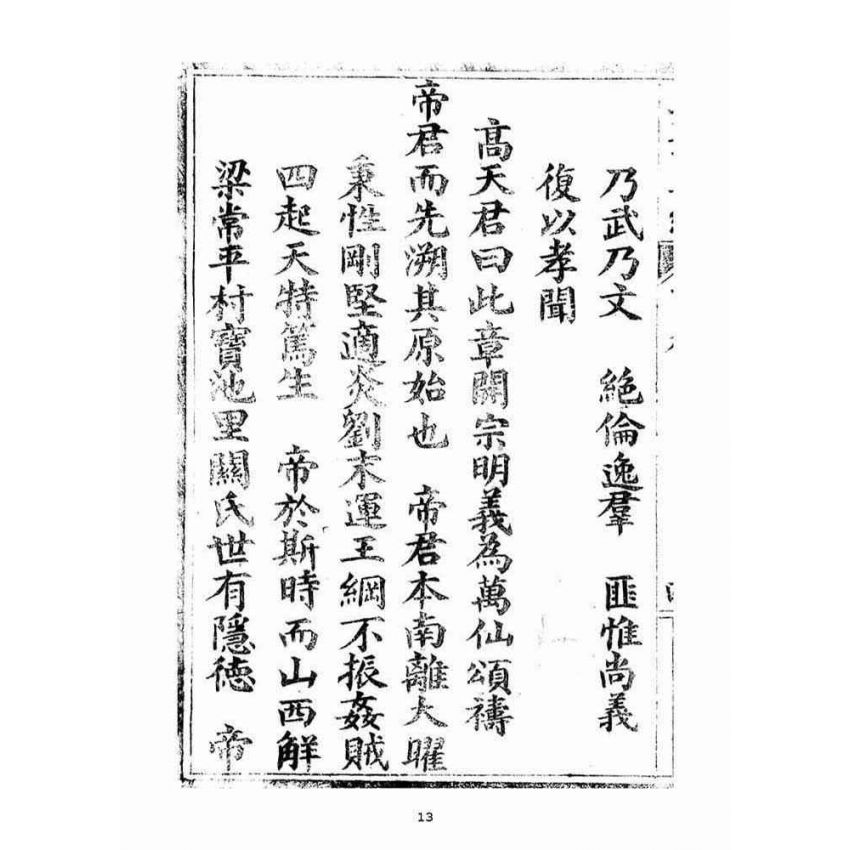 乃武乃文　絶倫逸羣　匪惟尚義
復以孝聞
高天君曰此章開宗明義為萬仙頌禱
帝君而先溯其原始也　帝君本南離大曜
秉性剛堅適炎劉末運王綱不振姦賊
四起天特篤生　帝於斯時而山西解
梁常平村寶池里關氏世有隱德　帝
13